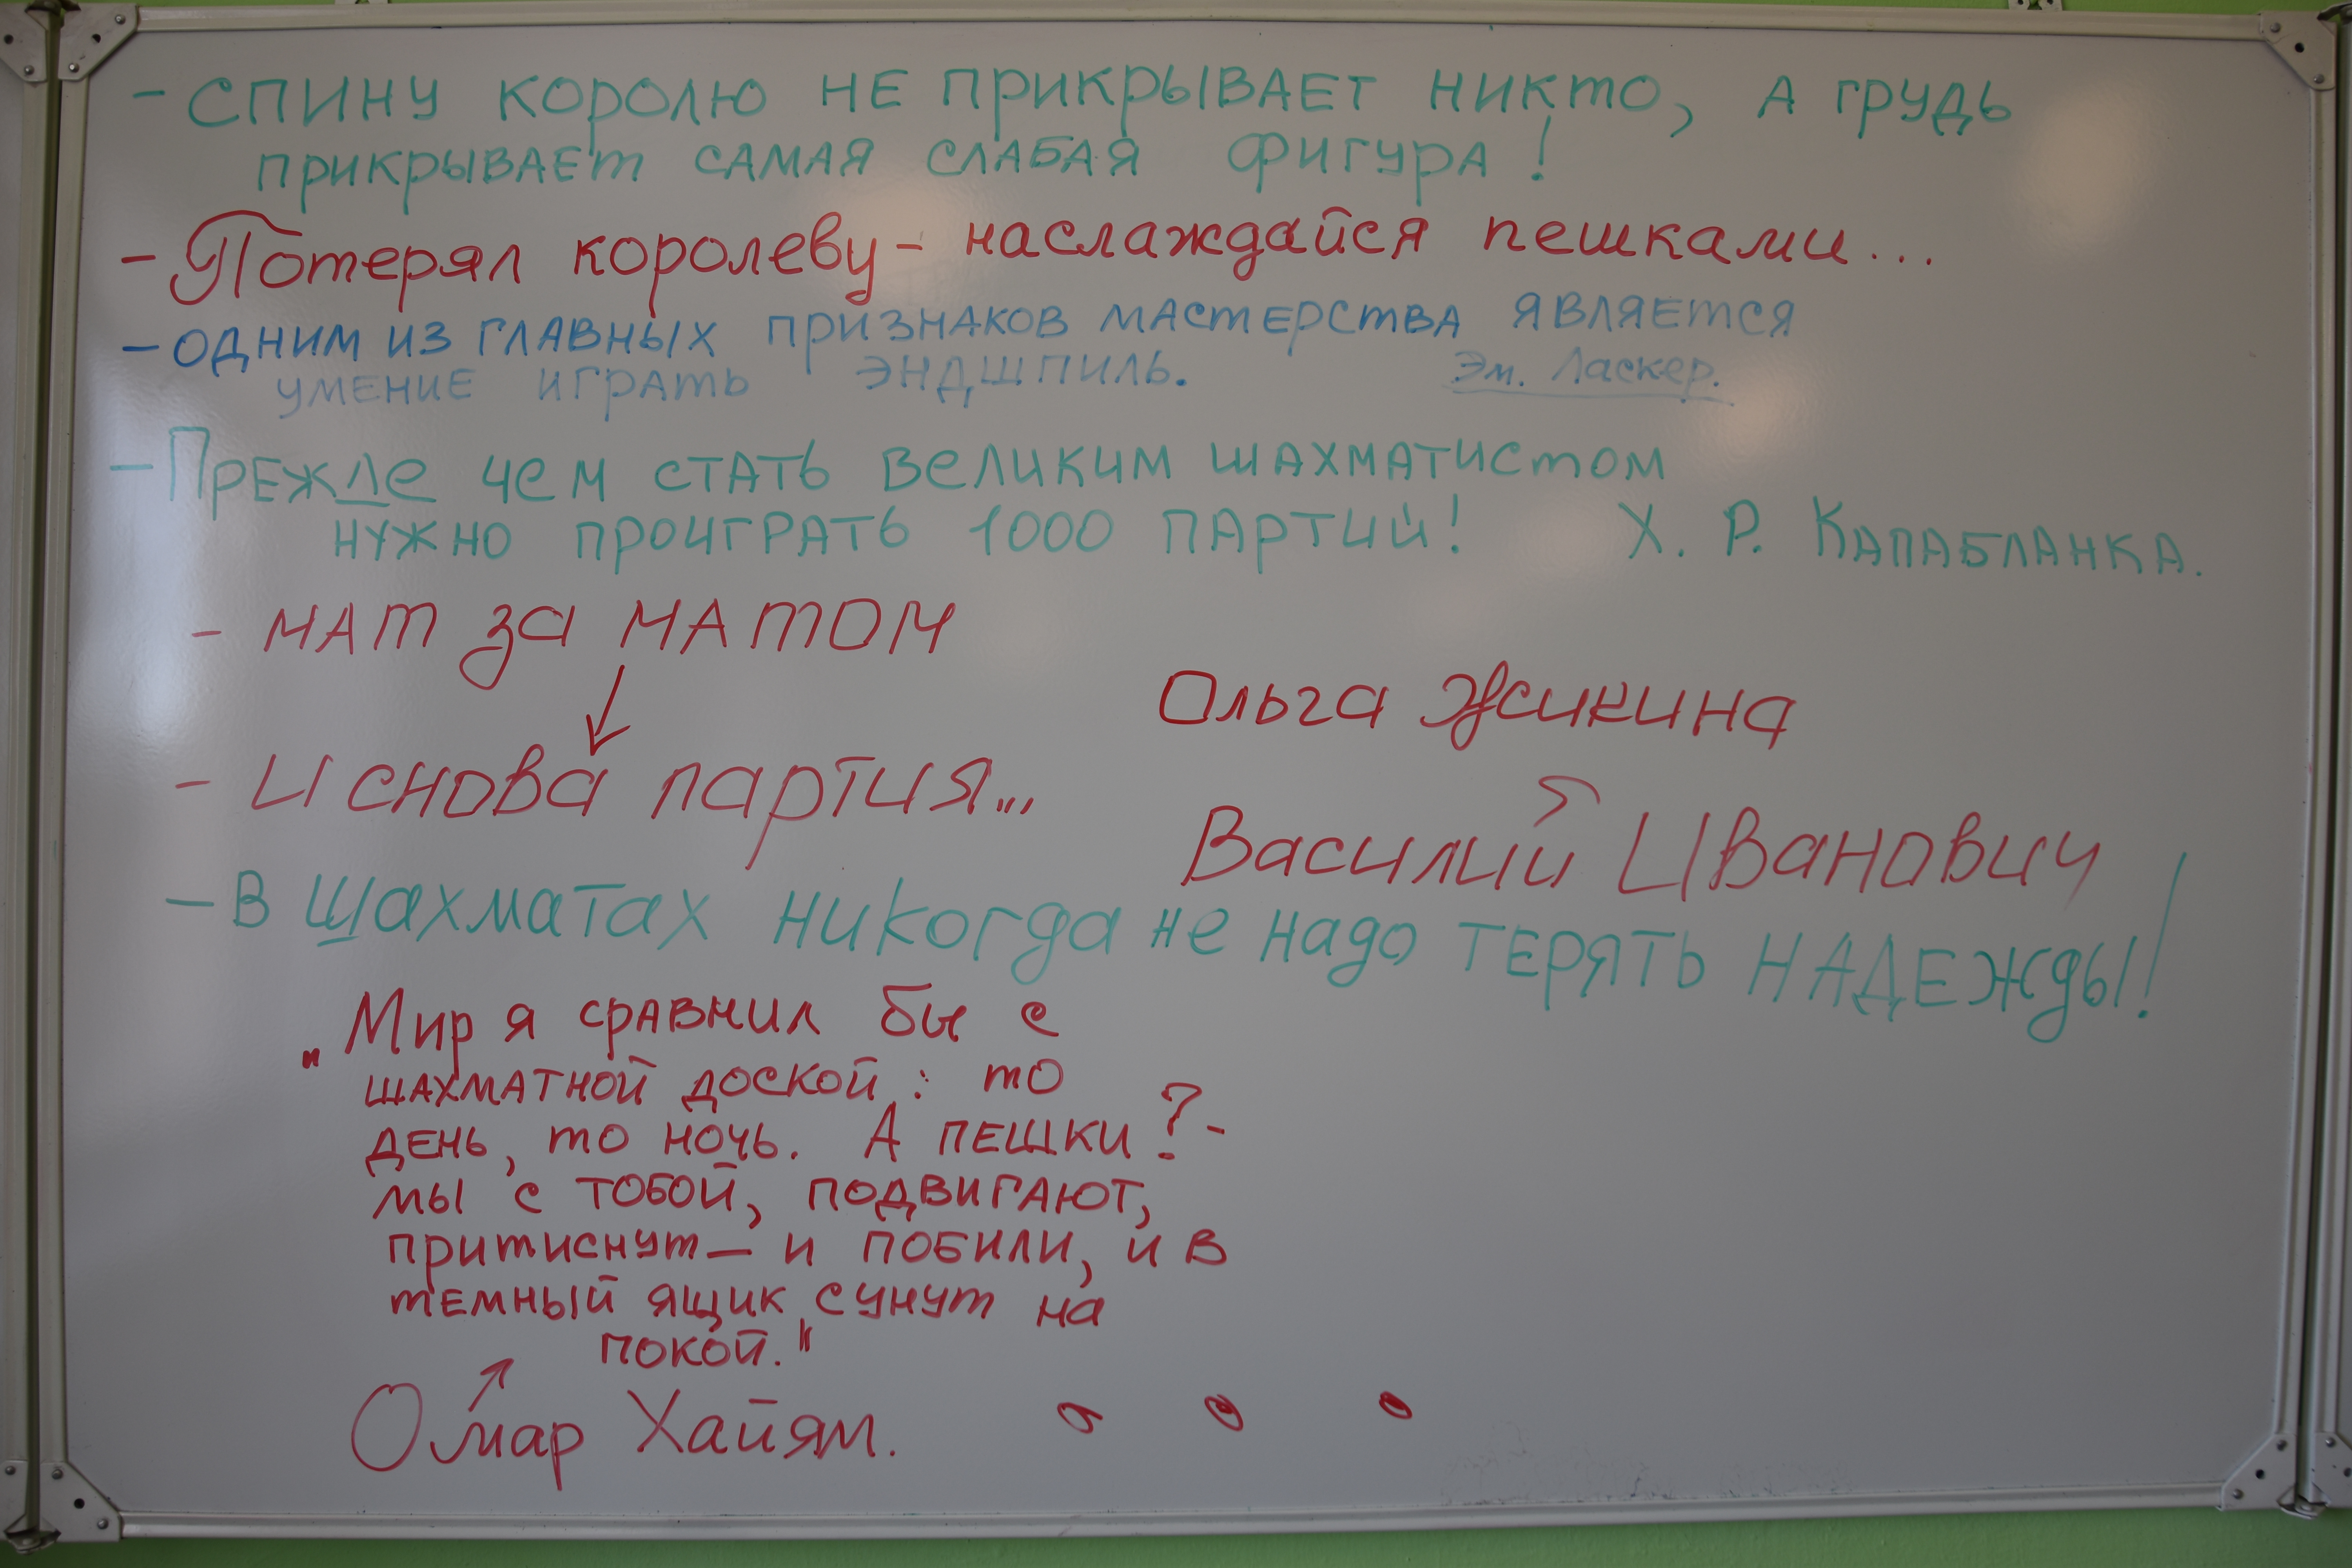 - СПИНУ КОРОЛЮ НЕ ПРИКРЫВАЕТ НИКТО, А ГРУДЬ
ПРИКРЫВАЕТ САМАЯ СЛАБАЯ ФИГУРА!
- Потерял королеву - наслаждайся пешками...
- ОДНИМ ИЗ ГЛАВНЫХ ПРИЗНАКОВ МАСТЕРСТВА ЯВЛЯЕТСЯ
УМЕНИЕ ИГРАТЬ ЭНДШПИЛЬ. Эм. Ласкер.
- ПРЕЖДЕ ЧЕМ СТАТЬ ВЕЛИКИМ ШАХМАТИСТОМ
НУЖНО ПРОИГРАТЬ 1000 ПАРТИЙ! Х. Р. КАПАБЛАНКА.
- МАТ за МАТОМ
Ольга Жикина
- И снова партия...
Василий Иванович
- В Шахматах никогда не надо ТЕРЯТЬ НАДЕЖДЫ!
"Мир я сравнил бы с
шахматной доской: то
день, то ночь. А пешки? -
мы с тобой, подвигают,
притиснут — и побили, и в
темный ящик сунут на
покой."
Омар Хайям.